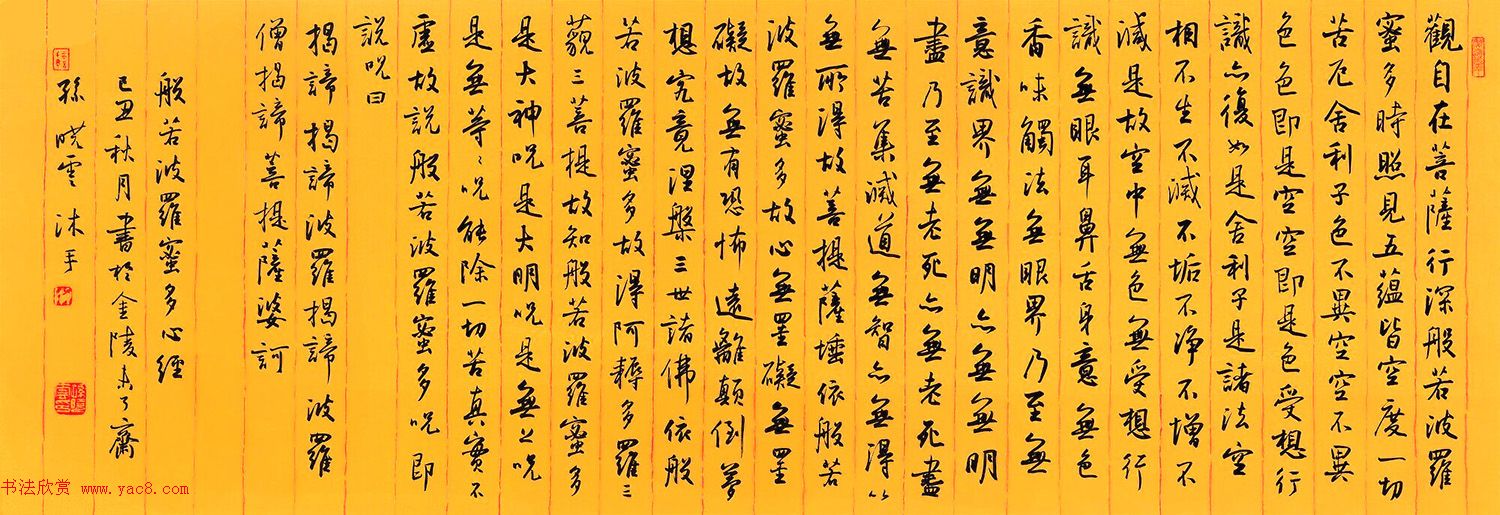 觀自在菩薩行深般若波羅
蜜多時照見五蘊皆空度一切
苦厄舍利子色不異空空不異
色色即是空空即是色受想行
識亦復如是舍利子是諸法空
相不生不滅不垢不淨不增不
減是故空中無色無受想行
識無眼耳鼻舌身意無色
香味觸法無眼界乃至無
意識界無無明亦無無明
盡乃至無老死亦無老死盡
無苦集滅道無智亦無得以
無所得故菩提薩埵依般若
波羅蜜多故心無罣礙無罣
礙故無有恐怖遠離顛倒夢
想究竟涅槃三世諸佛依般
若波羅蜜多故得阿耨多羅三
藐三菩提故知般若波羅蜜多
是大神咒是大明咒是無上咒
是無等等咒能除一切苦真實不
虛故說般若波羅蜜多咒即
說咒曰
揭諦揭諦波羅揭諦波羅
僧揭諦菩提薩婆訶
般若波羅蜜多心經
己丑秋月書於金陵未了齋
孫曉雲沐手
书法欣赏 www.yac8.com